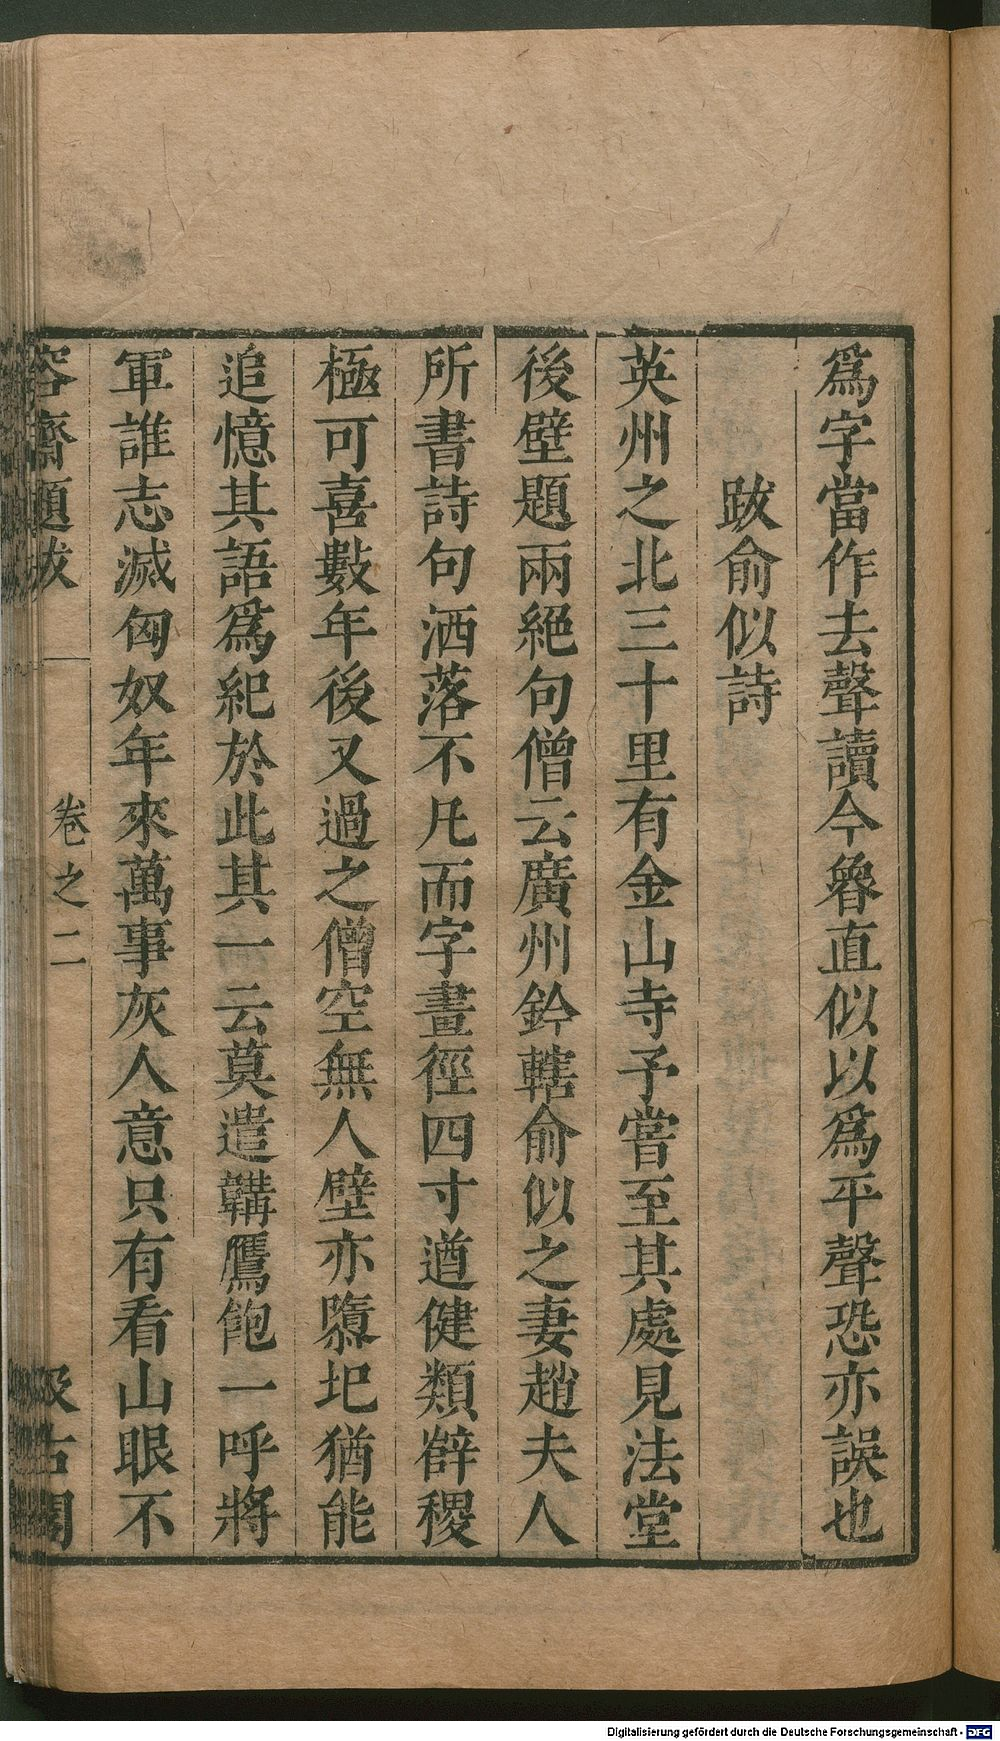 爲字當作去聲讀今魯直似以爲平聲恐亦誤也
跋俞似詩
英州之北三十里有金山寺予嘗至其處見法堂
後壁題兩絕句僧云廣州鈐轄俞似之妻趙夫人
所書詩句洒落不凡而字畫徑四寸遒健類薛稷
極可喜數年後又過之僧空無人壁亦隳圯猶能
追憶其語爲紀於此其一云莫遣韝鷹飽一呼將
軍誰志滅匈奴年來萬事灰人意只有看山眼不
容齋題跋 卷之二 汲古閣
Digitalisierung gefördert durch die Deutsche Forschungsgemeinschaft - DFG